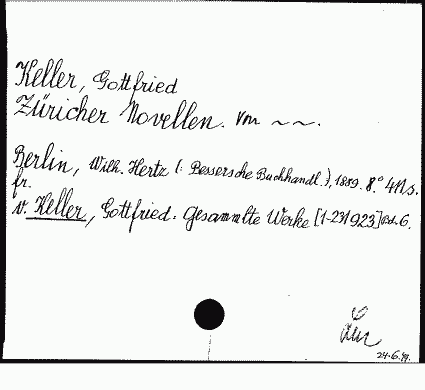 Keller, Gottfried
Züricher Novellen. Von ~~.
Berlin, Wilh. Hertz (: Bessersche Buchhandl.), 1889. 8.° 411 s.
fr.
v. Keller, Gottfried. Gesammlte Werke [1-23 1923] Bd. 6.
24.6.